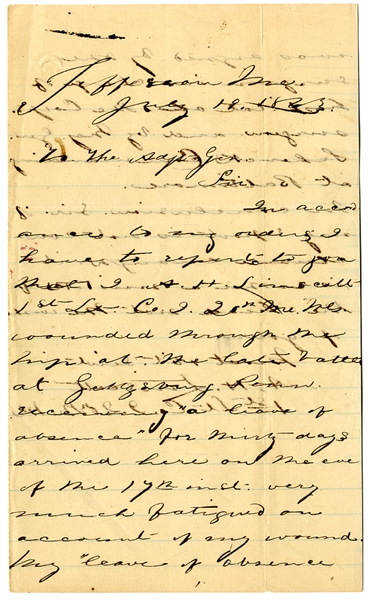 Jefferson Me.
July 18 1863
To the Adjt Gen
Sir
In accor
dance to my orders I
have to report to you
that I A. H. Linscott
1st Lt. Co. I. 20th Me. Vols
wounded through the
hip at the late battle
at Gettysburg Penn.
receiving "a leave of
absence" for thirty days
arrived here on the eve
of the 17th inst. very
much fatigued on
account of my wound.
My "leave of absence